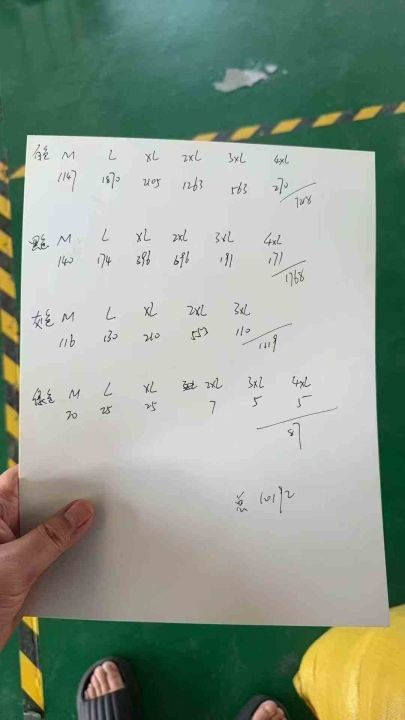 白色 M L XL 2XL 3XL 4XL
1147 1870 2105 1263 563 270
7218
黑色 M L XL 2XL 3XL 4XL
140 174 396 696 191 171
1768
灰色 M L XL 2XL 3XL
116 130 210 553 110
1119
绿色 M L XL 2XL 3XL 4XL
20 25 25 7 5 5
87
总 10192